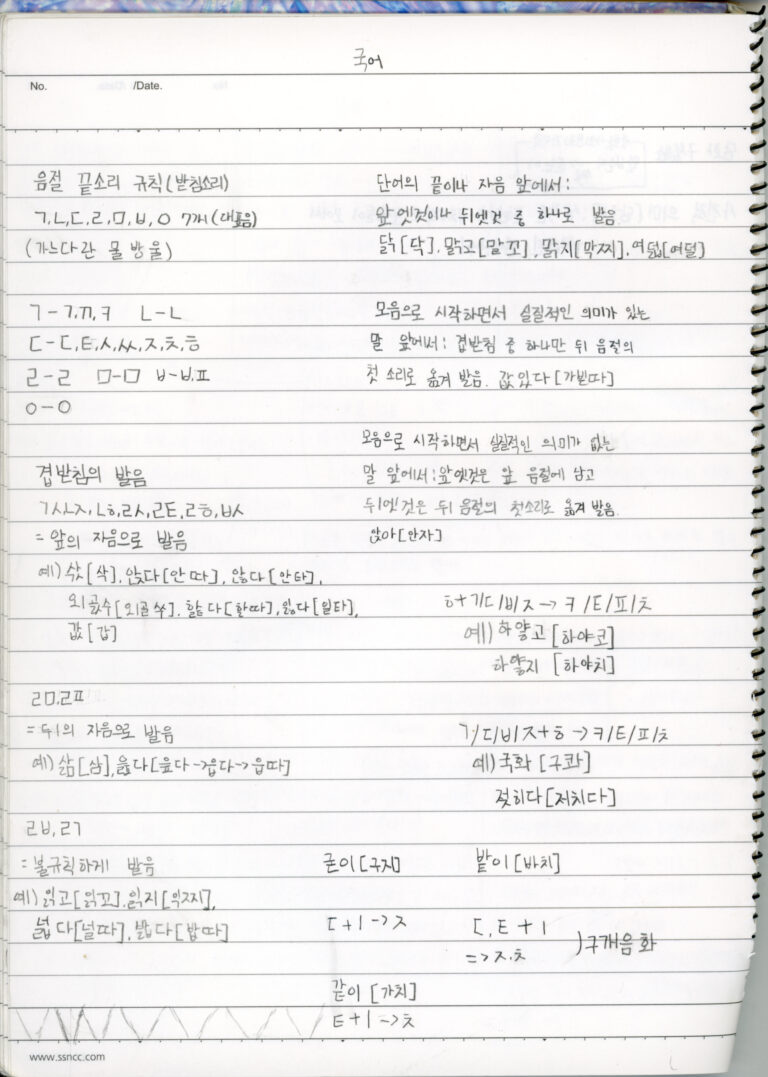 국어
No. /Date.
음절 끝소리 규칙(받침소리)
ㄱ,ㄴ,ㄷ,ㄹ,ㅁ,ㅂ,ㅇ 7개(대표음)
(가느다란 물방울)
ㄱ-ㄱ,ㄲ,ㅋ ㄴ-ㄴ
ㄷ-ㄷ,ㅌ,ㅅ,ㅆ,ㅈ,ㅊ,ㅎ
ㄹ-ㄹ ㅁ-ㅁ ㅂ-ㅂ,ㅍ
ㅇ-ㅇ
겹받침의 발음
ㄱㅅㄴㅈ,ㄴㅎ,ㄹㅅ,ㄹㅌ,ㄹㅎ,ㅂㅅ
= 앞의 자음으로 발음
예) 삯[삭], 앉다[안따], 않다[안타],
외곬수[외골쑤], 핥다[할따], 잃다[일타],
값[갑]
ㄹㅁ,ㄹㅍ
= 뒤의 자음으로 발음
예) 삶[삼], 읊다[읊다->읍다->읍따]
ㄹㅂ,ㄹㄱ
= 불규칙하게 발음
예) 읽고[읽꼬], 읽지[익찌],
넓다[널따], 밟다[밥따]
단어의 끝이나 자음 앞에서:
앞엣것이나 뒤엣것 중 하나로 발음
닭[닥], 맑고[말꼬], 맑지[막찌], 여덟[여덜]
모음으로 시작하면서 실질적인 의미가 있는
말 앞에서: 겹받침 중 하나만 뒤 음절의
첫 소리로 옮겨 발음. 값있다[가빋따]
모음으로 시작하면서 실질적인 의미가 없는
말 앞에서: 앞엣것은 앞 음절에 남고
뒤엣것은 뒤 음절의 첫소리로 옮겨 발음.
앉아[안자]
ㅎ+ㄱ/ㄷ/ㅂ/ㅈ -> ㅋ/ㅌ/ㅍ/ㅊ
예) 하얗고[하야코]
하얗지 [하야치]
ㄱ/ㄷ/ㅂ/ㅈ+ㅎ -> ㅋ/ㅌ/ㅍ/ㅊ
예) 국화 [구콰]
젖히다[저치다]
굳이[구지] 밭이[바치]
ㄷ+ㅣ->ㅈ ㄷ,ㅌ+ㅣ
=>ㅈ,ㅊ )구개음화
같이 [가치]
ㅌ+ㅣ->ㅊ
www.ssncc.com